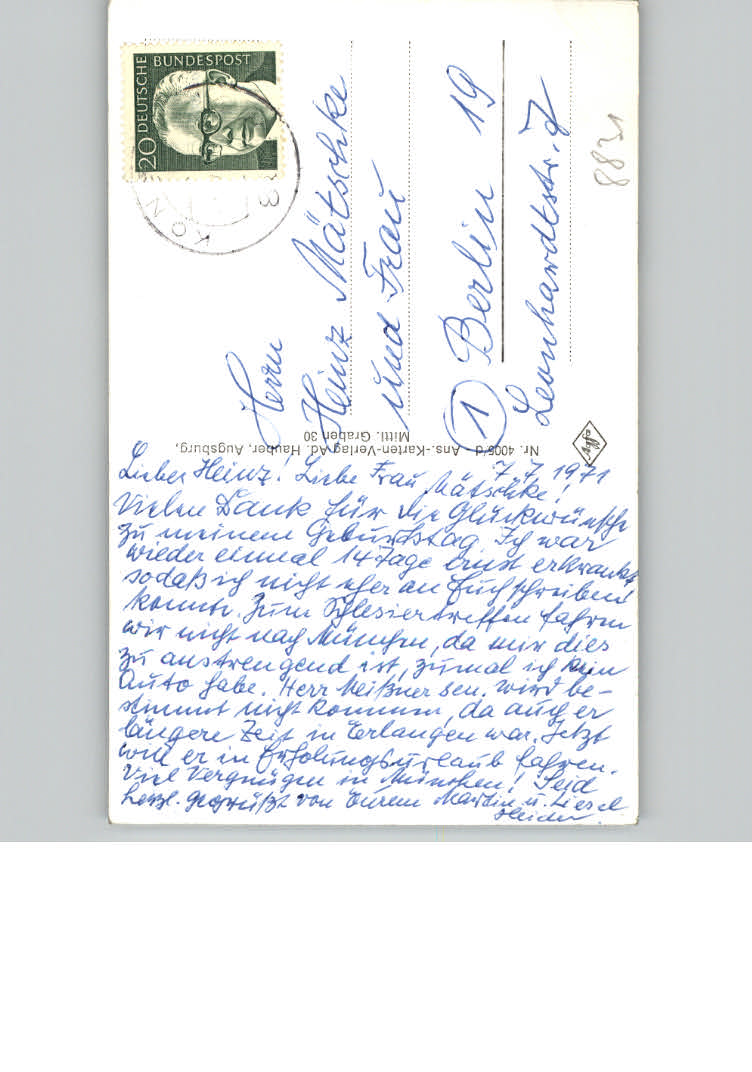 7.7.1971
Lieber Heinz! Liebe Frau Mätschke!
Vielen Dank für die Glückwünsche
zu meinem Geburtstag. Ich war
wieder einmal 14 Tage ernst erkrankt,
sodaß ich nicht eher an Euch schreiben
konnte. Zum Schlesiertreffen fahren
wir nicht nach München, da mir dies
zu anstrengend ist, zumal ich kein
Auto habe. Herr Meißner sen. wird be-
stimmt nicht kommen, da auch er
längere Zeit in Erlangen war. Jetzt
will er in Erholungsurlaub fahren.
Viel Vergnügen in München! Seid
herzl. gegrüßt von Eurem Martin u. Liesel
Herrn
Heinz Mätschke
und Frau
1 Berlin 19
Leonhardtstr. 7
DEUTSCHE BUNDESPOST
20
8831
Nr. 4005/d - Ans.-Karten-Verlag Ad. Hauber, Augsburg,
Mittl. Graben 30